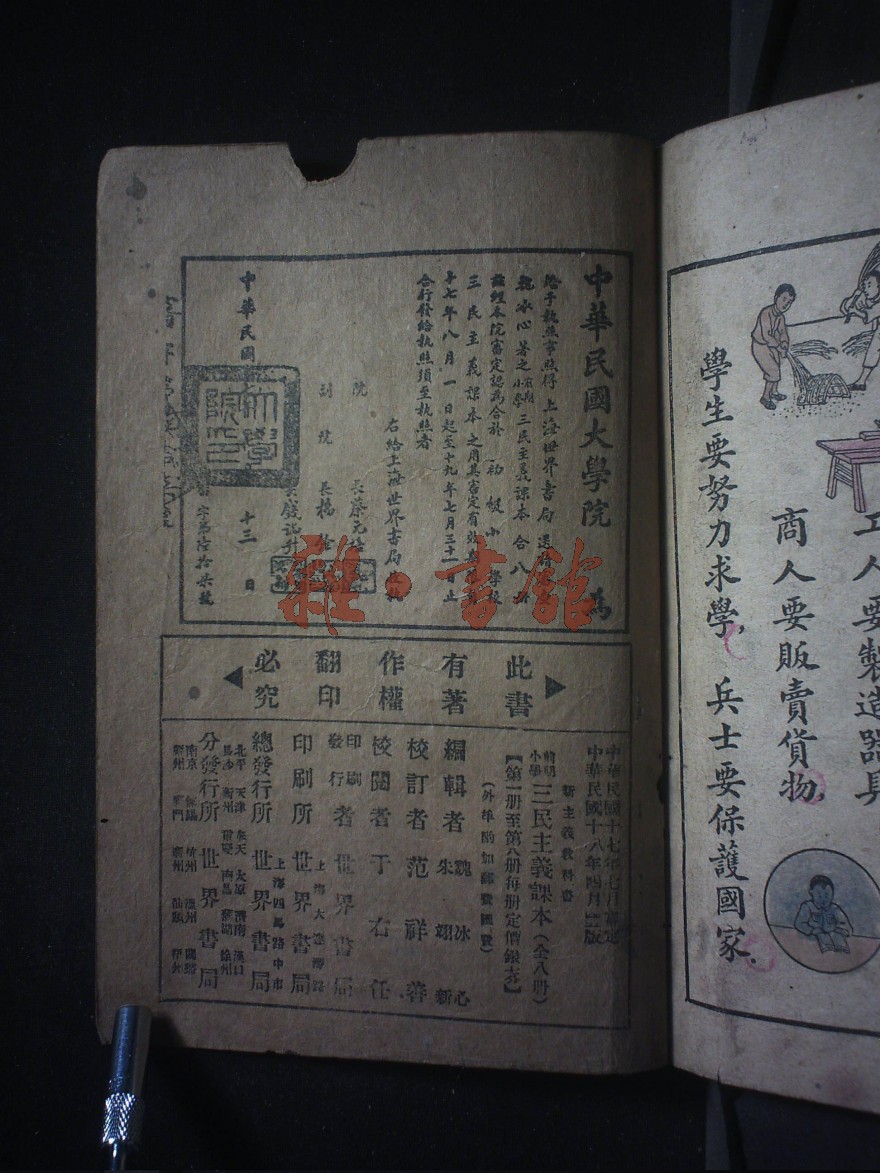 學生要努力求學,
兵士要保護國家.
商人要販賣貨物,
工人要製造器具
中華民國大學院 為
給予執照事照得 上海世界書局
魏冰心著之小學三民主義課本合八
茲經本院審定認為合於 初級小學校
三民主義課本之用其審定有效
十七年八月一日起至十九年七月三十一日止
合行發給執照須至執照者
右給上海世界書局
院 長蔡元培
副院 長楊
中華民國
十三日
大學院印
雜·書館
此書
有著
作權
翻印
必究
中華民國十七年七月審定
中華民國十八年四月 版
新主義教科書
小學 三民主義課本(全八冊)
【第一冊至第八冊每冊定價銀 】
(外埠酌加郵費匯費)
編輯者 魏冰心 朱翊新
校訂者 范祥善
校閱者 于右任
印刷發行者 世界書局
印刷所 世界書局
上海大連灣路
總發行所 世界書局
上海四馬路中市
分發行所 世界書局
北平 天津 奉天 太原 濟南 漢口
長沙 衡州 南昌 蕪湖 徐州
南京 杭州 溫州
廈門 廣州 汕頭